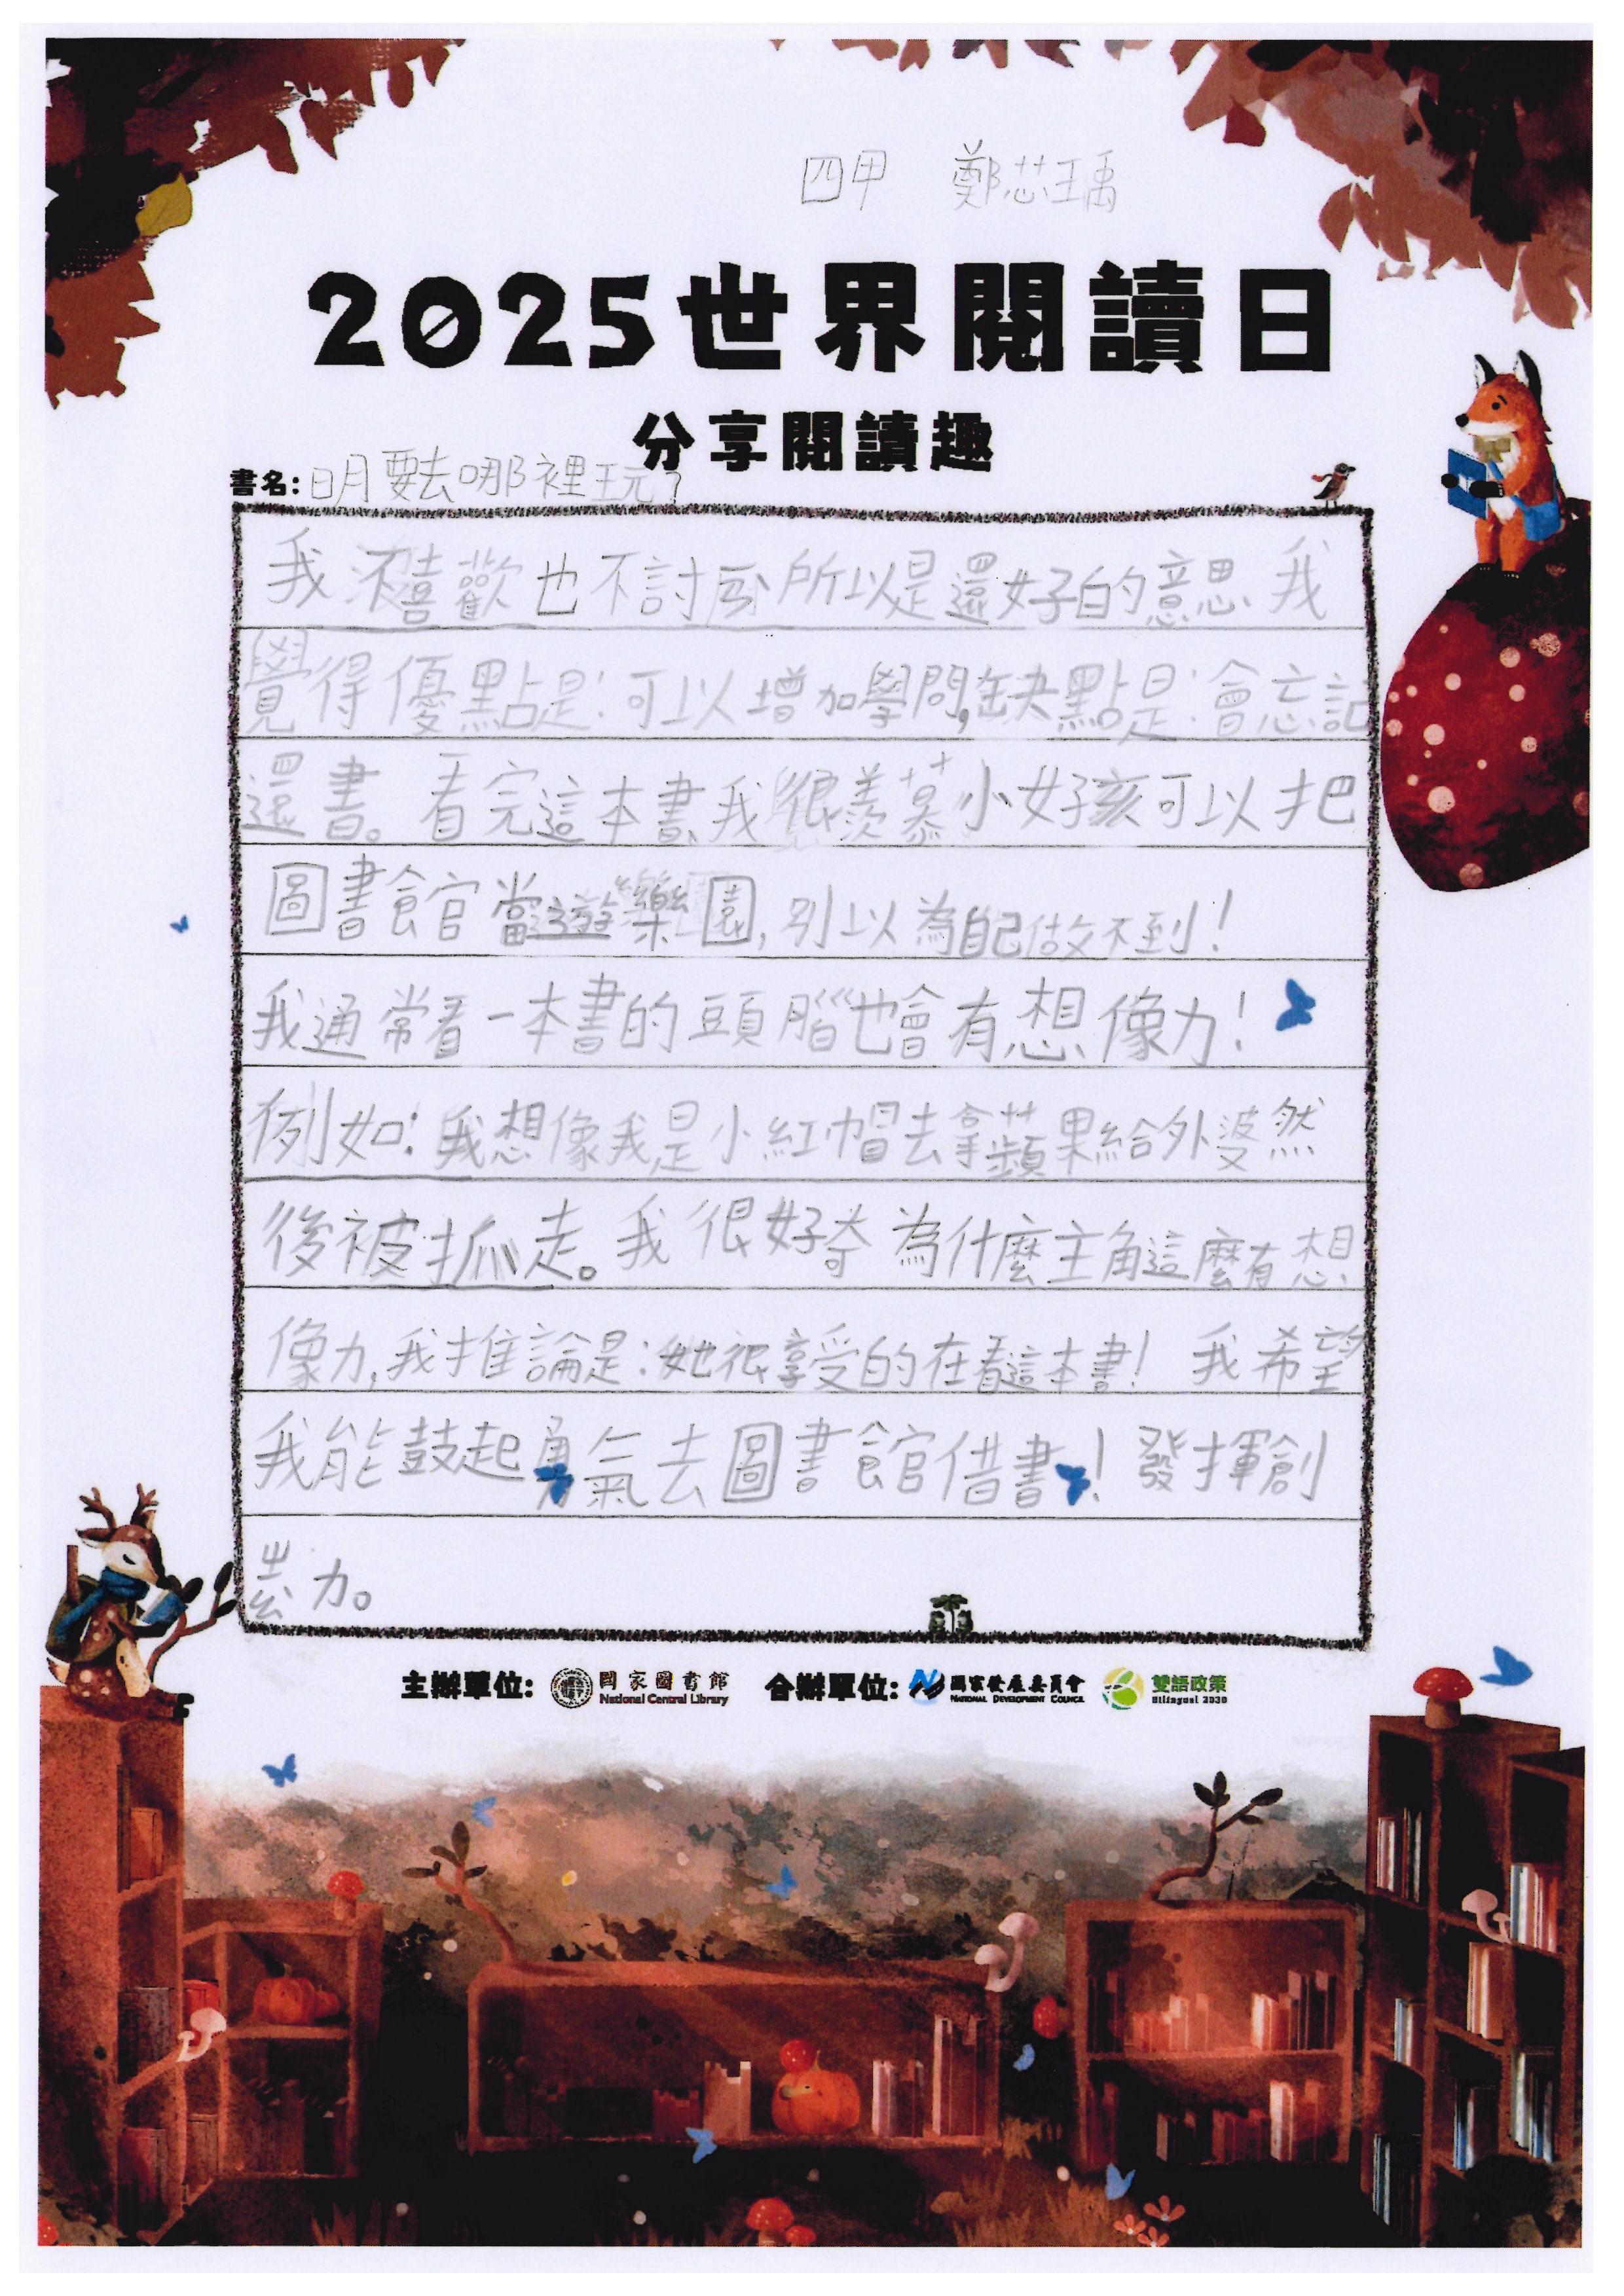 四甲 鄭芯瑀
2025世界閱讀日
分享閱讀趣
書名:明要去哪裡玩?
我不喜歡也不討 所以是還好的意思、我
覺得優點是:可以增加學問,缺點是:會忘記
還書。看完這本書、我很羨慕小女孩可以把
圖書館當遊樂園,別以為自己做不到!
我通常看一本書的頭腦也會有想像力!
例如:我想像我是小紅帽去拿蘋果給外婆然
後被抓走。我很好奇為什麼主角這麼有想
像力,我推論是:她很享受的在看這本書! 我希望
我能鼓起勇氣去圖書館借書!發揮創
力。
主辦單位: 國家圖書館 National Central Library 合辦單位: 國家發展委員會 National Development Council 雙語政策 Bilingual 2030